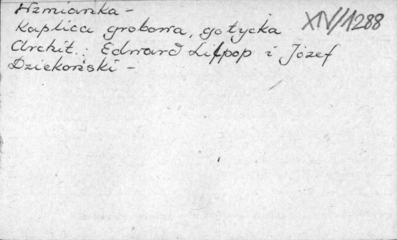 Wzmianka -
Kaplica grobowa, gotycka
XIV/1288
Archit.: Edward Lilpop i Józef
Dziekoński -